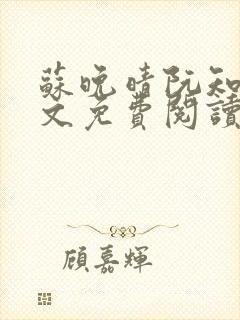 蘇晚晴阮知
文免費閱讀
顧嘉輝